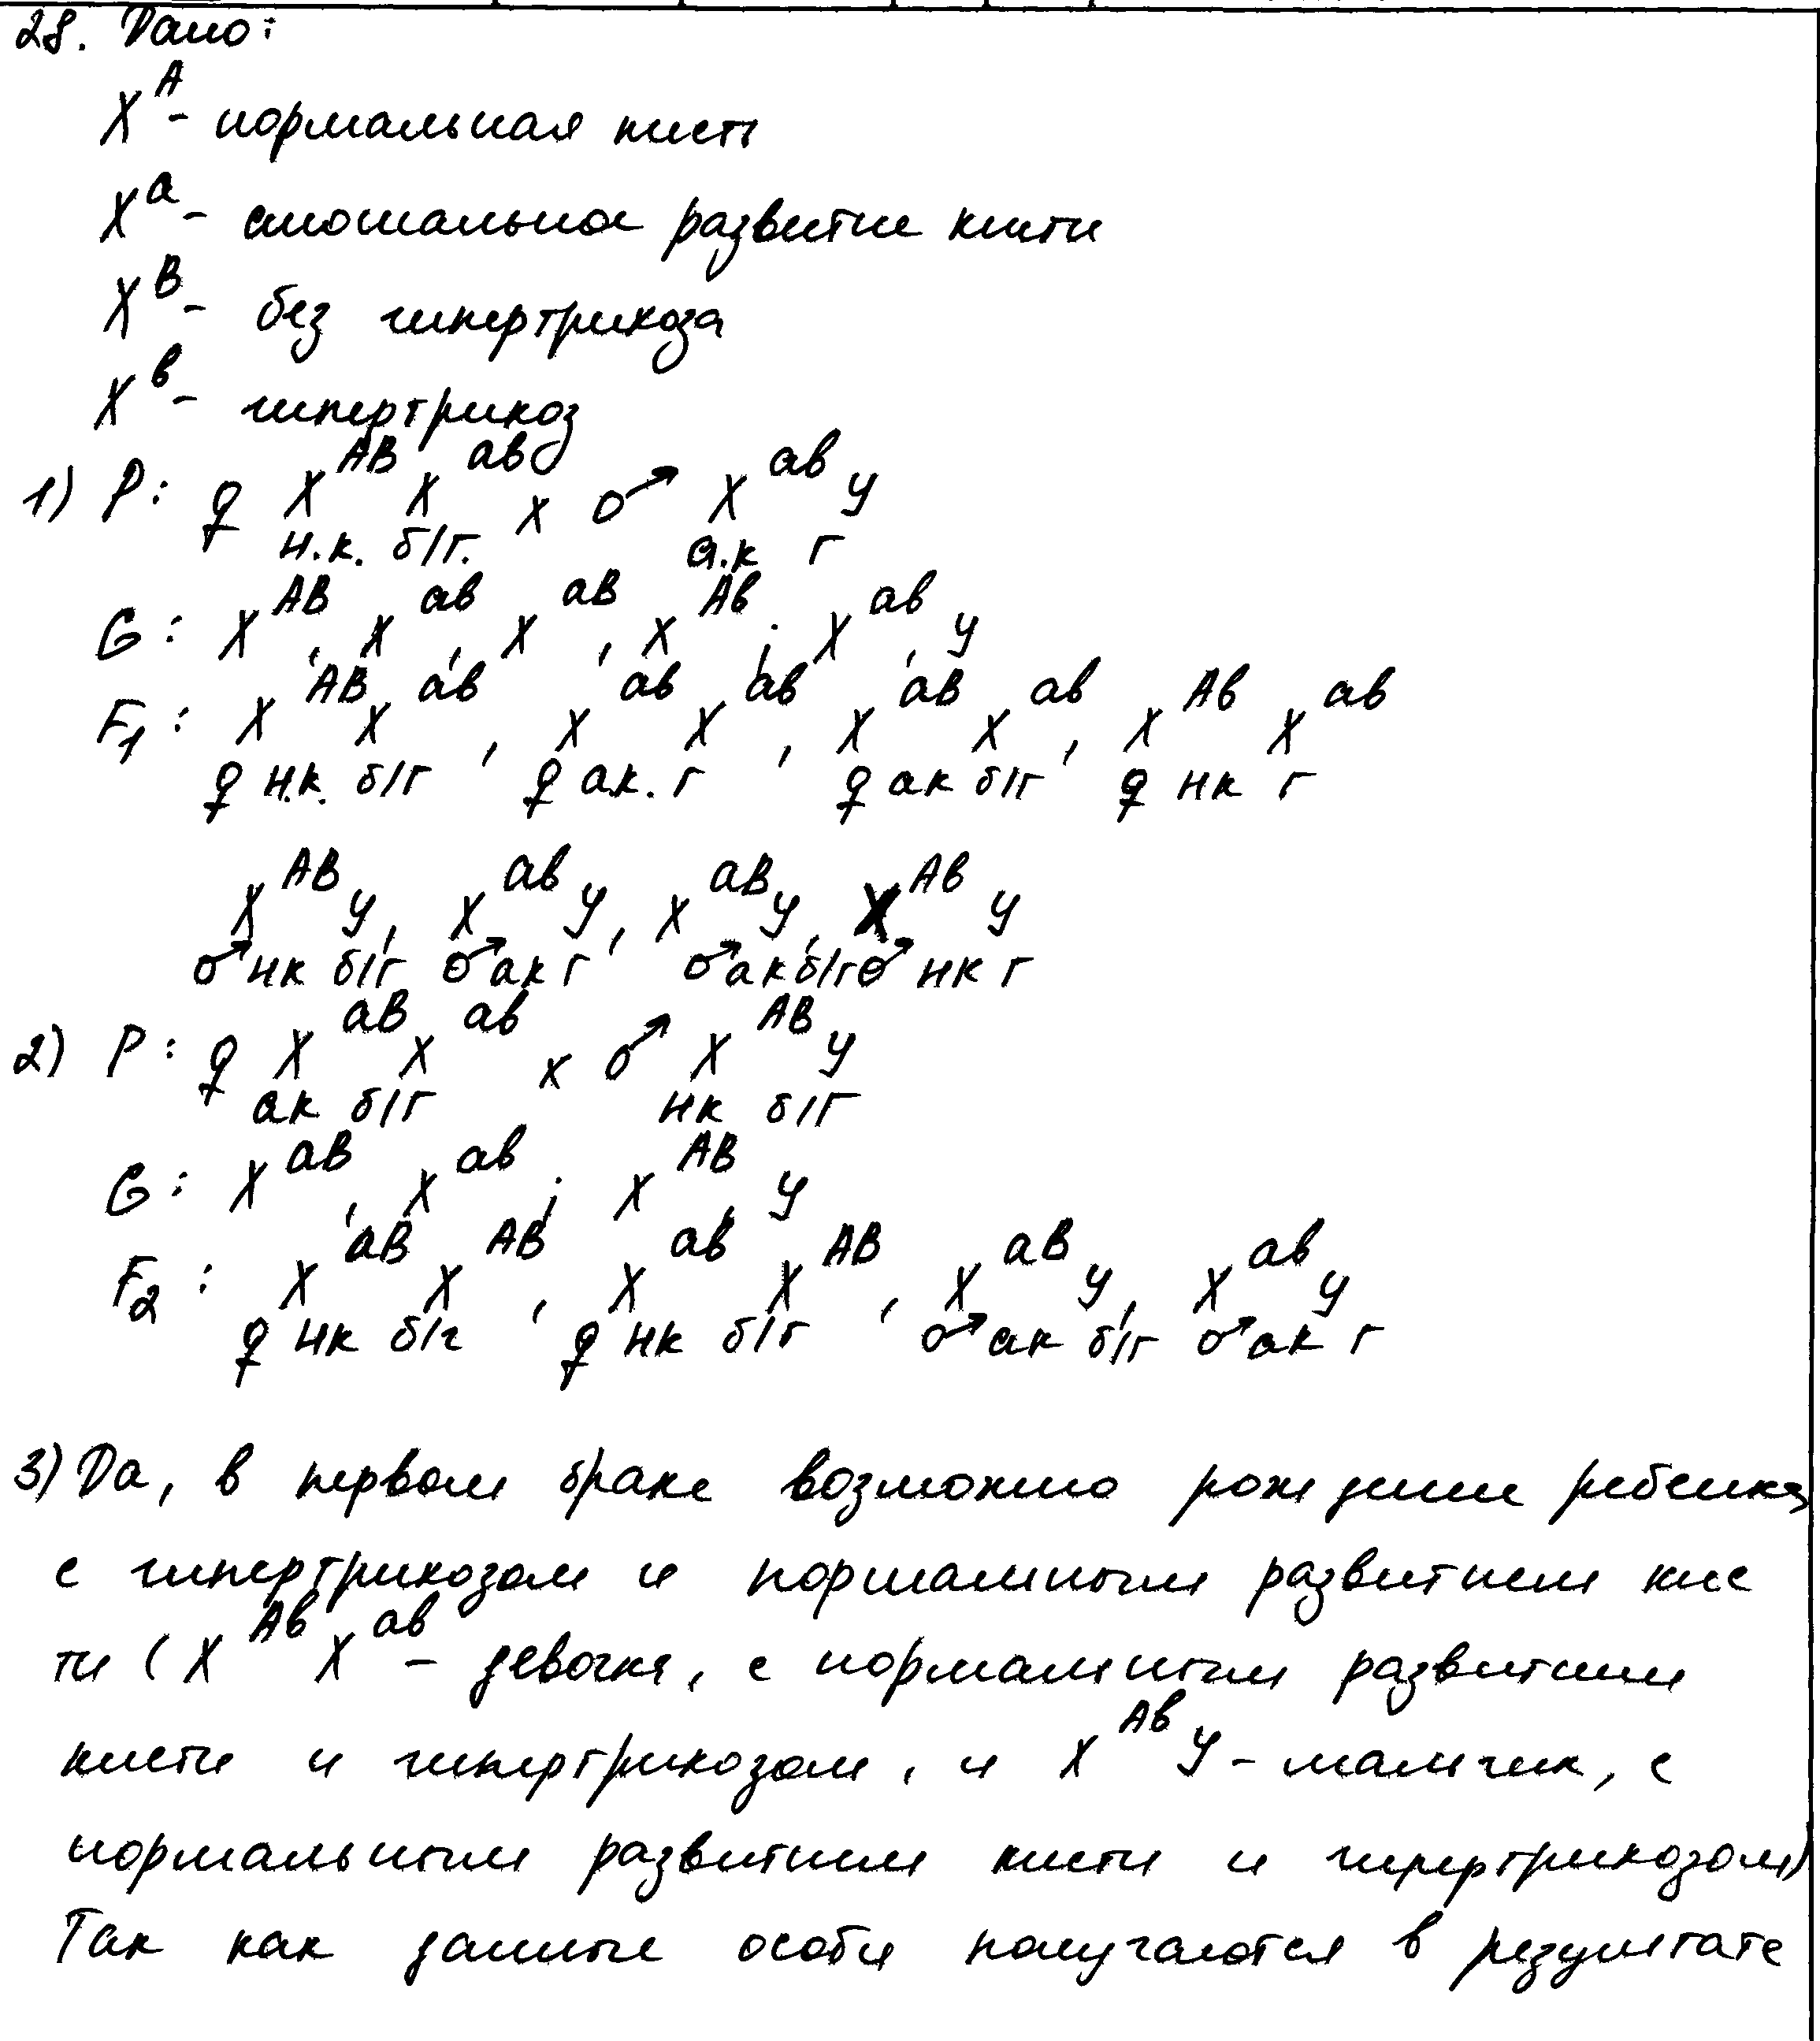 28. Дано:
X^A - нормальная кисть
X^a - аномальное развитие кисти
X^B - без гипертрихоза
X^b - гипертрихоз
1) P: ♀ X^AB X^ab x ♂ X^ab Y
н.к. б/г. а.к г
G: X^AB, X^ab, X^aB, X^Ab; X^ab, Y
F1: X^AB X^ab, X^ab X^ab, X^aB X^ab, X^Ab X^ab
♀ н.к. б/г, ♀ ак. г, ♀ ак б/г, ♀ нк г
X^AB Y, X^ab Y, X^aB Y, X^Ab Y
♂ нк б/г, ♂ ак г, ♂ ак б/г ♂ нк г
2) P: ♀ X^aB X^ab x ♂ X^AB Y
ак б/г нк б/г
G: X^aB, X^ab; X^AB, Y
F2: X^aB X^AB, X^ab X^AB, X^aB Y, X^ab Y
♀ нк б/г, ♀ нк б/г, ♂ ак б/г, ♂ ак г
3) Да, в первом браке возможно рождение ребенка
с гипертрихозом и нормальным развитием кис
ти (X^Ab X^ab - девочка, с нормальным развитием
кисти и гипертрихозом, и X^Ab Y - мальчик, с
нормальным развитием кисти и гипертрихозом)
Так как данные особи получаются в результате